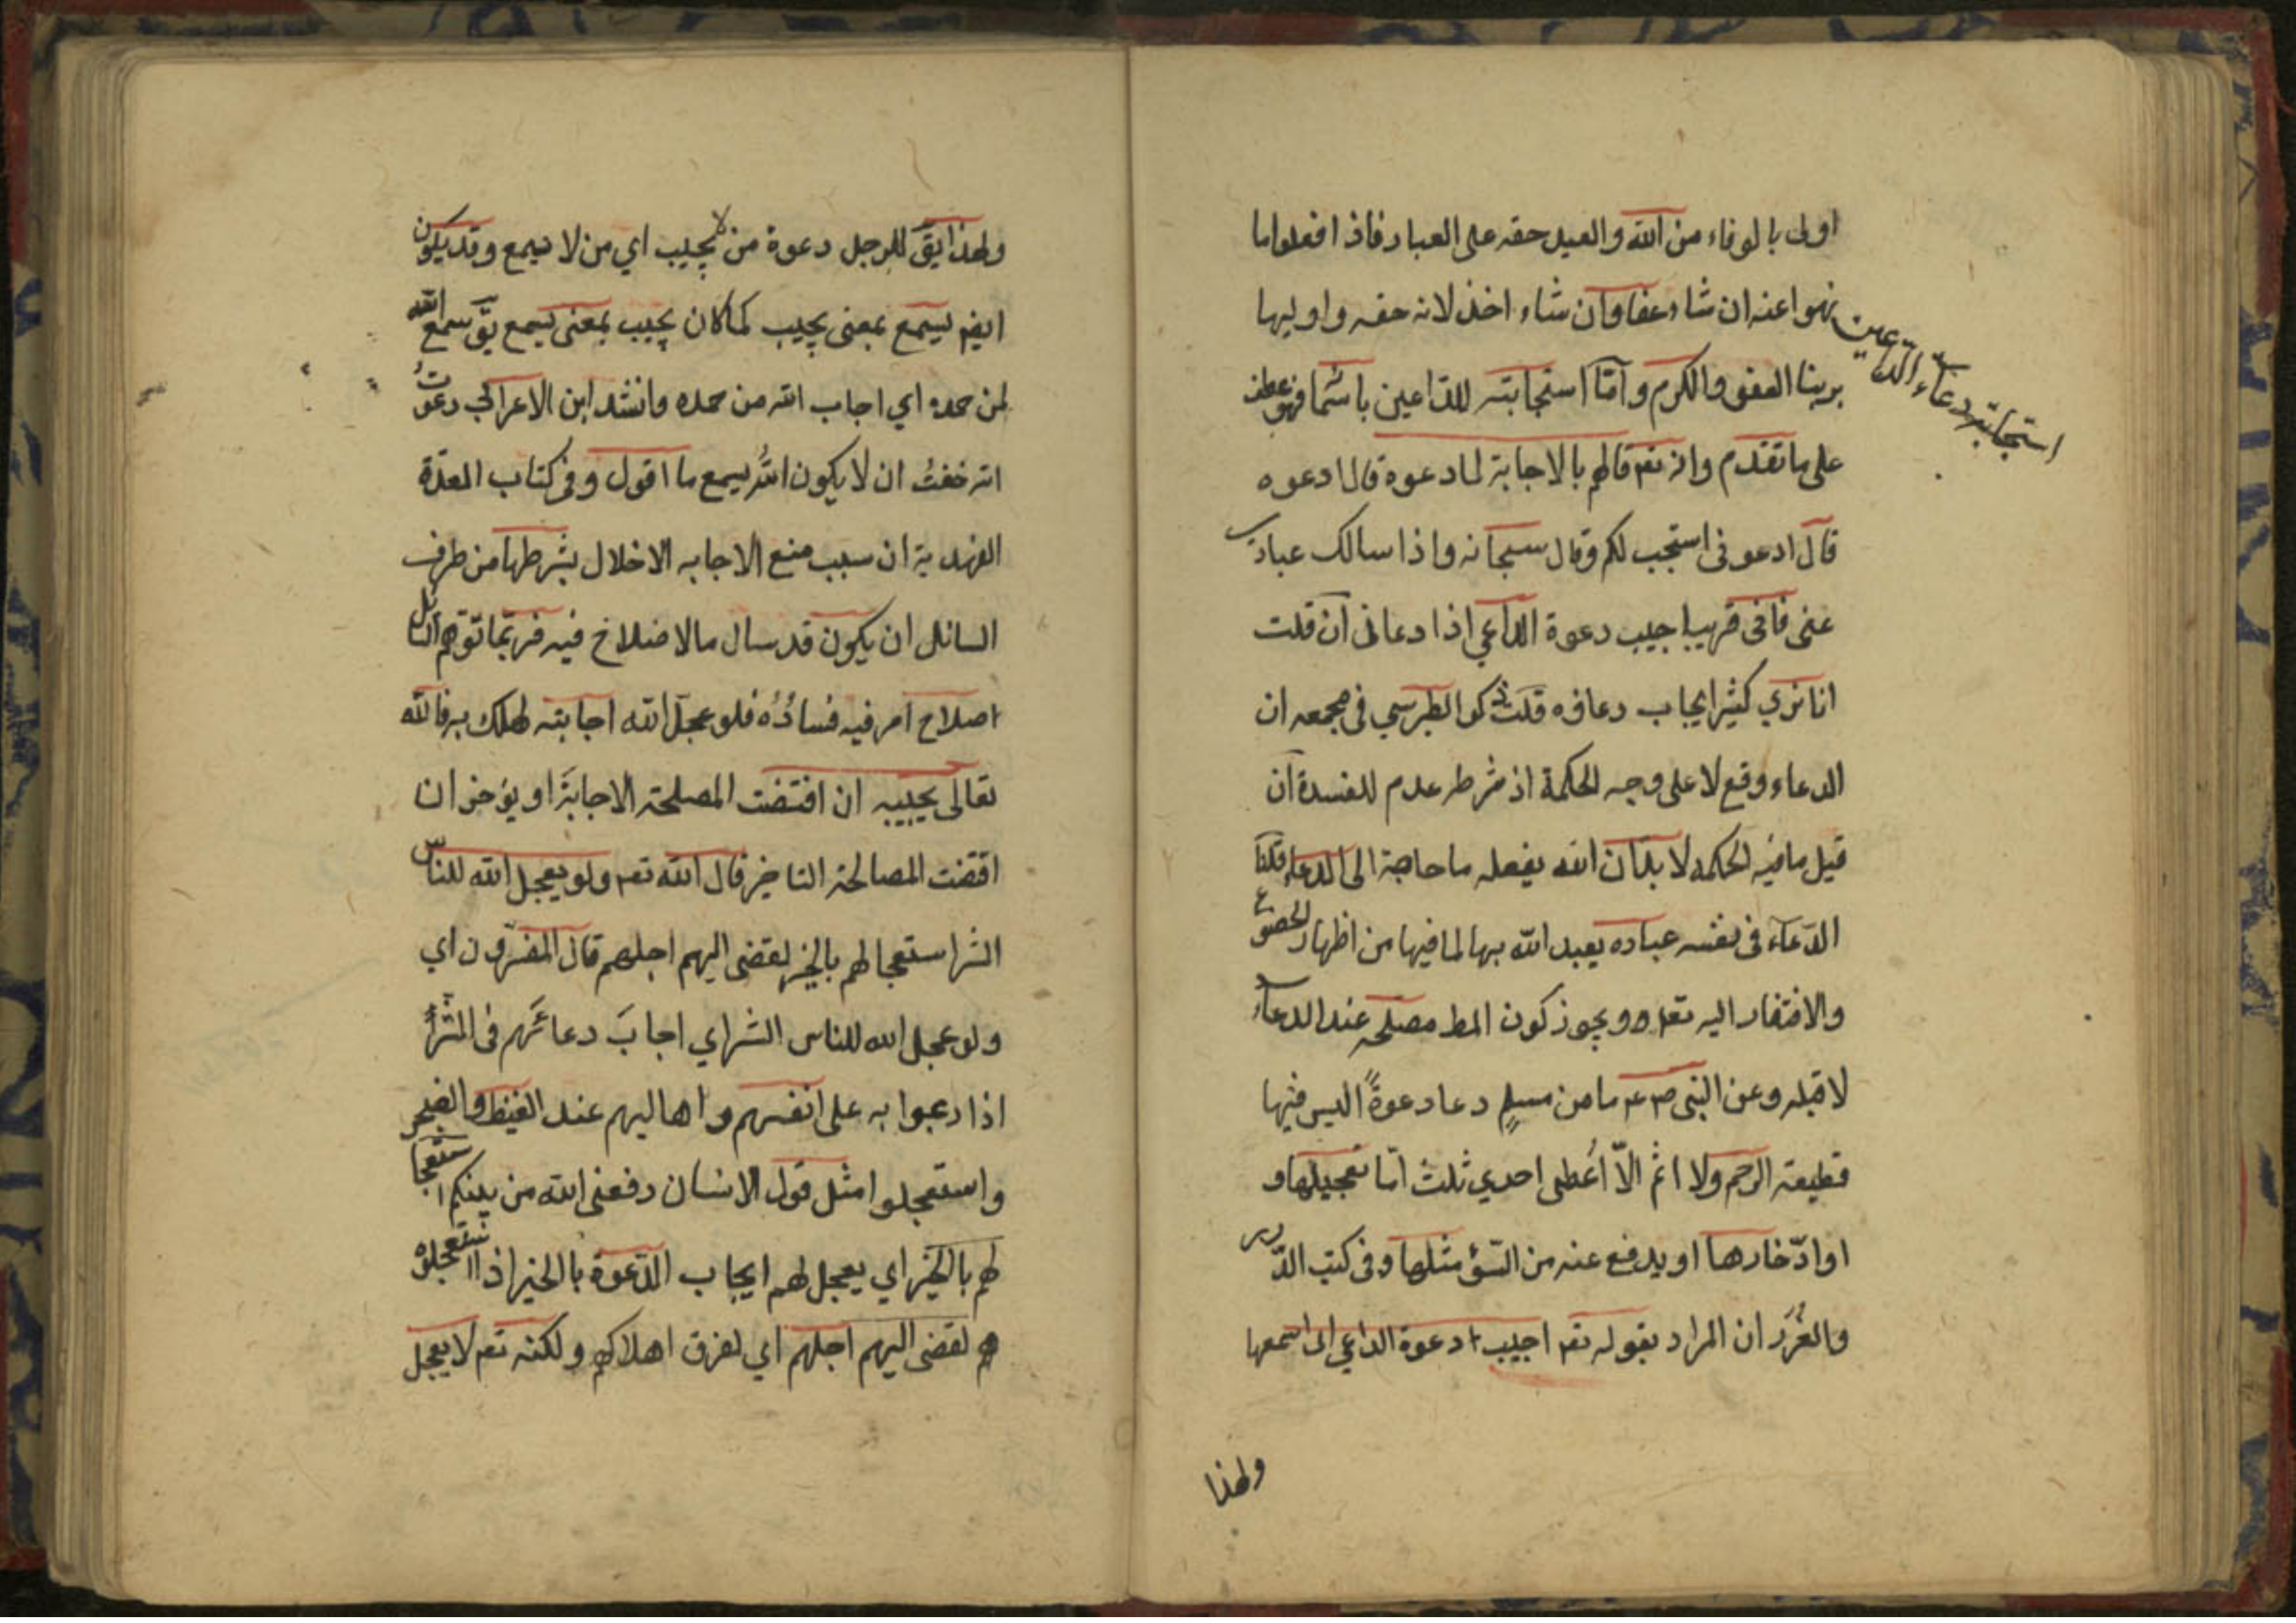 اولى بالوفاء من الله والعيد حقه على العباد فاذا افعلوا ما
نهوا عنه ان شاء عفا وان شاء اخذ لانه حقه واوليها
بربنا العفو والكرم وامّا استجابته للدّاعين باسمائه فهو عطف
استجابته دعاء الدّاعين
على ما تقدم وانه تعم قالهم بالاجابة لما دعوه قال ادعوه
قال ادعونى استجب لكم وقال سبحانه واذا سالك عبادى
عنى فانى قريب اجيب دعوة الداعي اذا دعانى ان قلت
انا نرى كثيرا يجاب دعاؤه قلت ذكر الطبرسي فى مجمعه ان
الدعاء وقع لا على وجه الحكمة اذ شرطه عدم المفسدة ان
قيل ما فيه الحكمه لا بدّ ان الله يفعله ما حاجة الى الدعاء قلنا
الدّعاء فى نفسه عباده يعبد الله بها لما فيها من اظهار الخضوع
والافتقار اليه تعم وويجوز كون المط مصلحه عند الدعاء
لا قبله وعن النبى صم ما من مسلم دعا دعوةً اليس فيها
قطيعة الرحم ولا اثم الّا اُعطى احدي ثلث امّا تعجيلها و
او ادّخارها او يدفع عنه من السّؤ مثلها وفى كتب الدّرر
والغُرَر ان المراد بقوله تعم اجيب دعوة الداعي اى اسمعها
ولهذا
ولهذا يقَ للرجل دعوة من لا يجيب اي من لا يسمع وقد يكون
ايضم يسمع بمعنى يجيب كما كان يجيب بمعنى يسمع يقَ سمع الله
لمن حمده اي اجاب الله من حمده وانشد ابن الاعرابي دعوتُ
الله خفتُ ان لا يكون اللّهُ يسمع ما اقول وفى كتاب العدّة
الفهدية ان سبب منع الاجابه الاخلال بشرطها من طرف
السائل ان يكون قد سال مالا صلاح فيه فربّما توهم السائل
اصلاح امر فيه فسادُه فلو عجل الله اجابته لهلك به فالله
تعالى يجيبه ان اقتضت المصلحة الاجابةَ او يؤخر ان
اقتضت المصالحة التاخير قال الله تعم ولو يعجل الله للناس
الشر استعجالهم بالخير لقضى اليهم اجلهم قال المفسّرون اي
ولو عجل الله للناس الشر اي اجابَ دعائهم فى الشرّ
اذا دعوا به على انفسهم واهاليهم عند الغيظ والضجر
واستعجلوا مثل قول الانسان دفعنى الله من بينكم استعجا
لهم بالخير اي يعجل لهم ايجاب الدّعوة بالخير اذا استعجلوه
هم لقضى اليهم اجلهم اي لفرق اهلاكهم ولكنه تعم لا يعجل